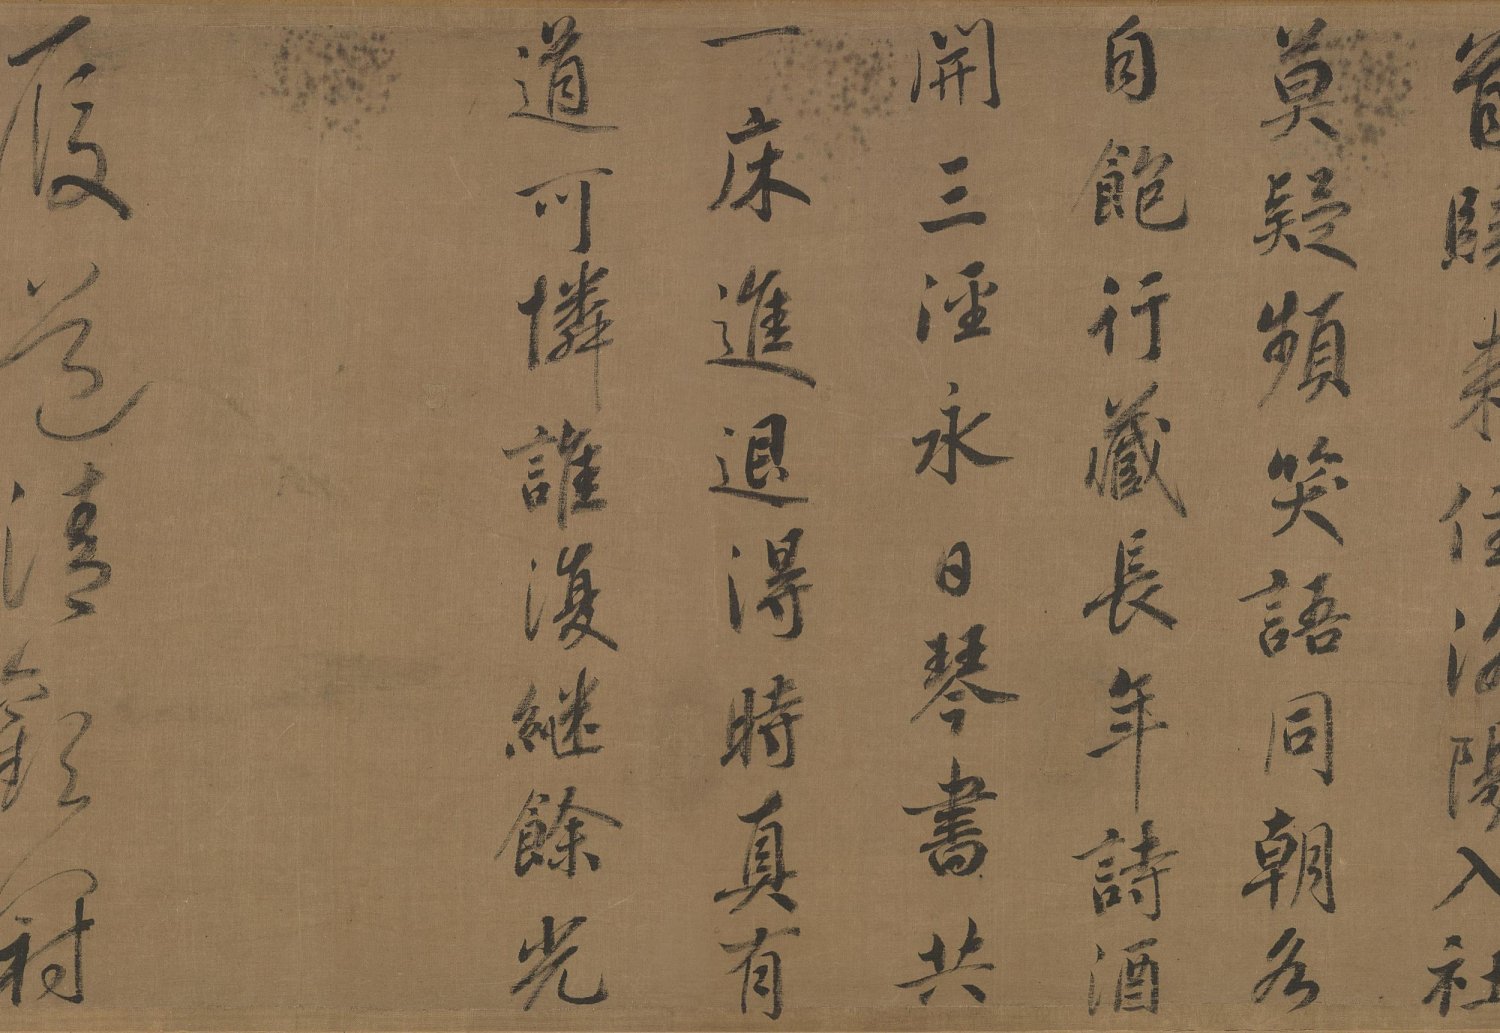 首歸來住洛陽入社
莫疑頻笑語同朝各
自飽行藏長年詩酒
開三涇永日琴書共
一床進退得時真有
道可憐誰復繼餘光
履道清歡